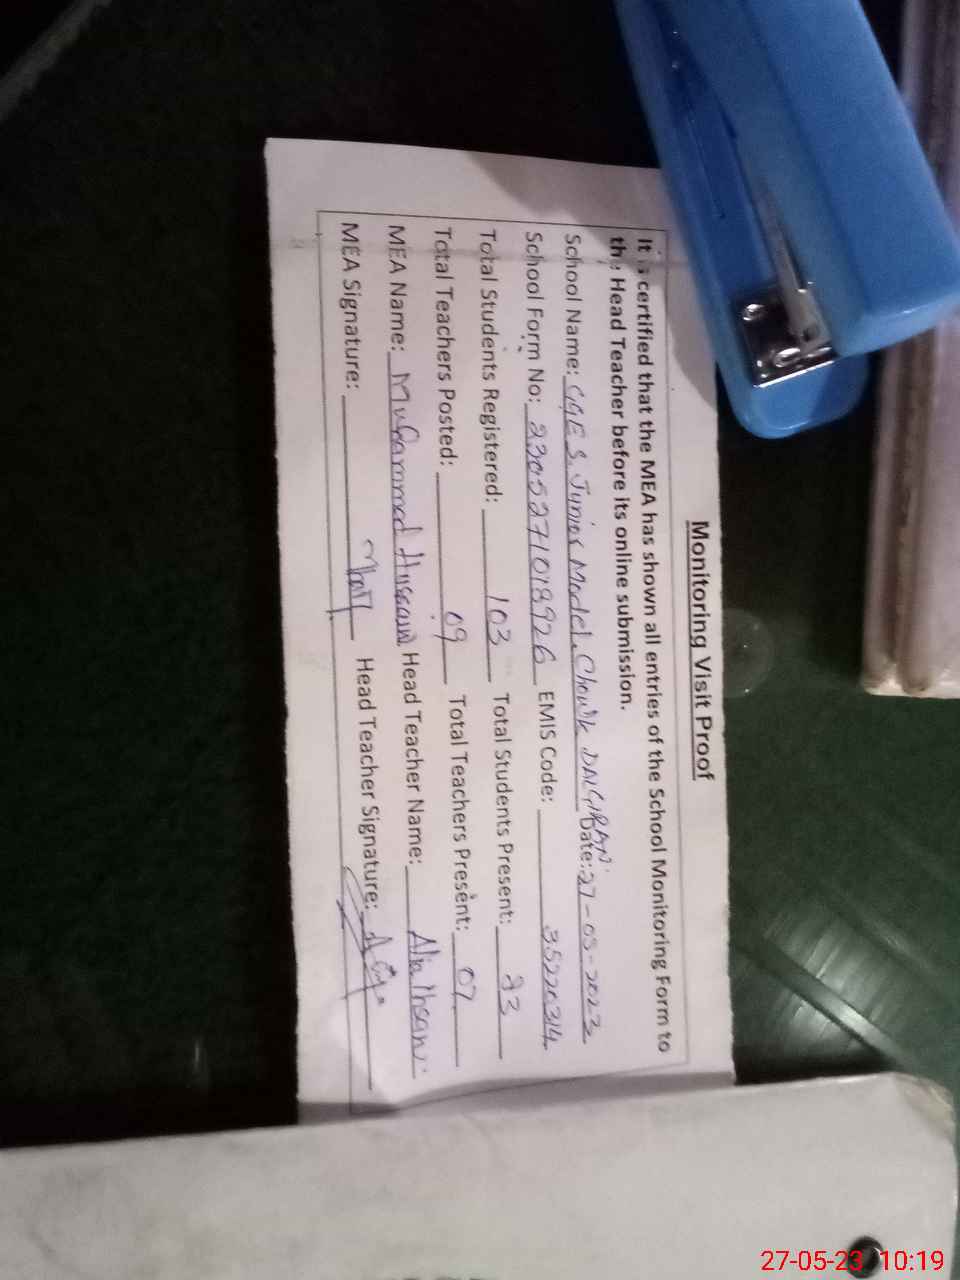 Monitoring Visit Proof
It is certified that the MEA has shown all entries of the School Monitoring Form to
the Head Teacher before its online submission.
School Name: GGES. Junior Model, Chowk DALGIRAN. Date: 27-05-2023
School Form No: 2305271018926 EMIS Code: 35220314
Total Students Registered: 103 Total Students Present: 23
Total Teachers Posted: 09 Total Teachers Present: 07
MEA Name: Muhammad Hussain Head Teacher Name: Alia Ihsan.
MEA Signature: Head Teacher Signature:
27-05-23 10:19